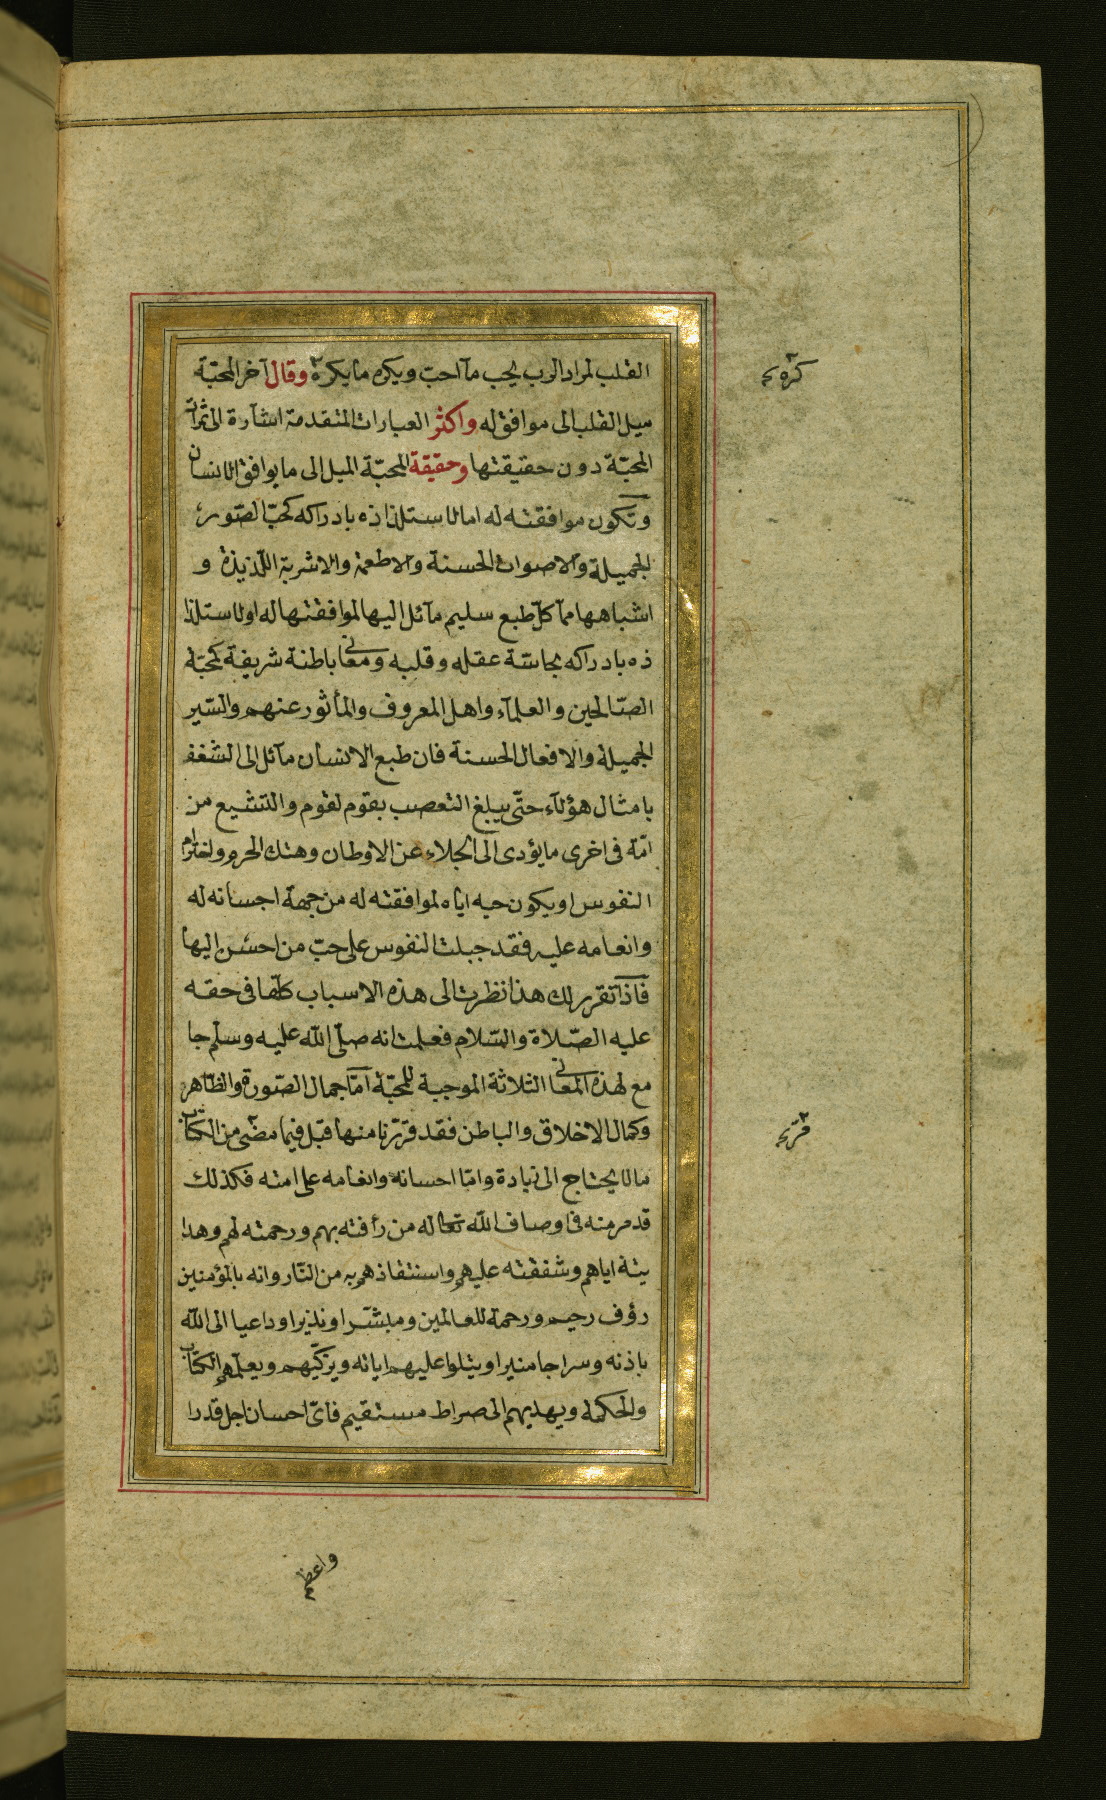 القلب لمراد الرب يحب ما احب ويكره ما يكره وقال آخر المحبّة
ميل القلب الى موافق له واكثر العبارات المتقدمة اشارة الى ثمرات
المحبّة دون حقيقتها وحقيقة المحبّة الميل الى ما يوافق الانسان
وتكون موافقته له اما لاستلذاذه بادراكه كحبّ الصّور
الجميلة والاصوات الحسنة والاطعمة والاشربة اللّذيذة و
اشباهها ممّا كلّ طبع سليم مآئل اليها لموافقتها له او لاستلذا
ذه بادراكه بحاسّة عقله وقلبه ومعانى باطنة شريفة كمحبّة
الصّالحين والعلمآء واهل المعروف والمأثور عنهم والسّير
الجميلة والافعال الحسنة فان طبع الانسان مآئل الى الشغف
بامثال هؤلآء حتّى يبلغ التعصب بقوم لقوم والتشيع من
امّة فى اخرى ما يؤدى الى الجلاء عن الاوطان وهتك الحرم واخترام
النفوس او يكون حبه اياه لموافقته له من جهة احسانه له
وانعامه عليه فقد جبلت النفوس على حبّ من احسن اليها
فاذا تقرر لك هذا نظرت الى هذه الاسباب كلّها فى حقه
عليه الصّلاة والسّلام فعلمت انه صلّى الله عليه وسلّم جا
مع لهذه المعانى الثلاثة الموجبة للمحبّة امّا جمال الصّورة والظّاهر
وكمال الاخلاق والباطن فقد قرّرنا منها قبل فيما مضى من الكتاب
ما لا يحتاج الى زيادة وامّا احسانه وانعامه على امته فكذلك
قد مر منه فى اوصاف الله تعالى له من رأفته بهم ورحمته لهم وهدا
يته اياهم وشفقته عليهم واستنقاذهم به من النّار وانه بالمؤمنين
رؤف رحيم ورحمة للعالمين ومبشّرا ونذيرا وداعيا الى الله
باذنه وسراجا منيرا ويتلوا عليهم اياته ويزكّيهم ويعلّمهم الكتاب
والحكمة ويهديهم الى صراط مستقيم فاىّ احسان اجل قدرا
واعظم
كره